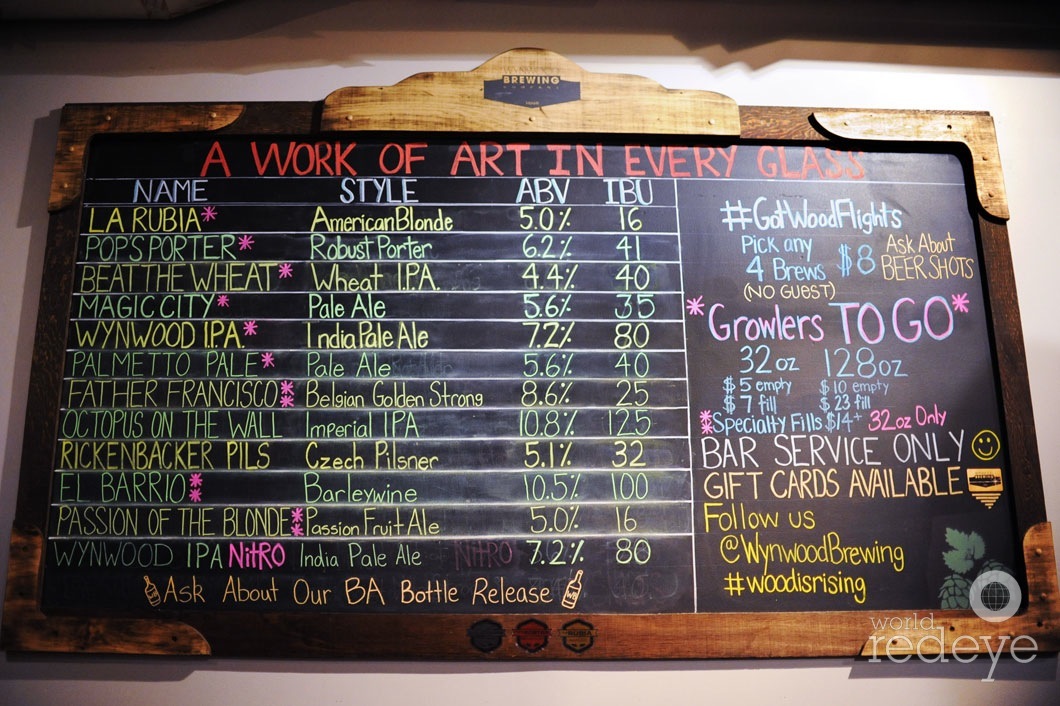 BREWING
COMPANY
A WORK OF ART IN EVERY GLASS
NAME STYLE ABV IBU
LA RUBIA* American Blonde 5.0% 16
POP'S PORTER* Robust Porter 6.2% 41
BEAT THE WHEAT* Wheat I.P.A. 4.4% 40
MAGIC CITY* Pale Ale 5.6% 35
WYNWOOD I.P.A.* India Pale Ale 7.2% 80
PALMETTO PALE* Pale Ale 5.6% 40
FATHER FRANCISCO** Belgian Golden Strong 8.6% 25
OCTOPUS ON THE WALL Imperial IPA 10.8% 125
RICKENBACKER PILS Czech Pilsner 5.1% 32
EL BARRIO** Barleywine 10.5% 100
PASSION OF THE BLONDE** Passion Fruit Ale 5.0% 16
WYNWOOD IPA NITRO India Pale Ale NITRO 7.2% 80
Ask About Our BA Bottle Release
#GotWoodFlights
Pick any
4 Brews $8
(NO GUEST)
Ask About
BEER SHOTS
*Growlers TO GO*
32oz 128oz
$5 empty $10 empty
$7 fill $23 fill
**Specialty Fills $14+ 32oz Only
BAR SERVICE ONLY
GIFT CARDS AVAILABLE
Follow us
@WynwoodBrewing
#woodisrising
world
redeye